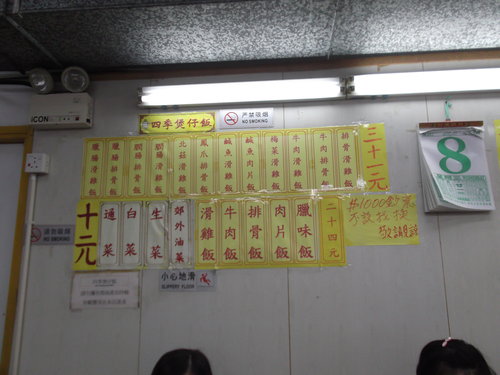 iCON
四季煲仔飯
严禁吸烟
NO SMOKING
臘腸滑雞飯
臘腸排骨飯
膶腸排骨飯
膶腸滑雞飯
北菇滑雞飯
鳳爪排骨飯
鹹魚滑雞飯
鹹魚肉片飯
梅菜滑雞飯
牛肉滑雞飯
牛肉排骨飯
排骨滑雞飯
三十一元
十元
通菜
白菜
生菜
郊外油菜
滑雞飯
牛肉飯
排骨飯
肉片飯
臘味飯
二十四元
$1000鈔票
不設找換
敬請見諒
8
请勿吸烟
NO SMOKING
小心地滑
SLIPPERY FLOOR